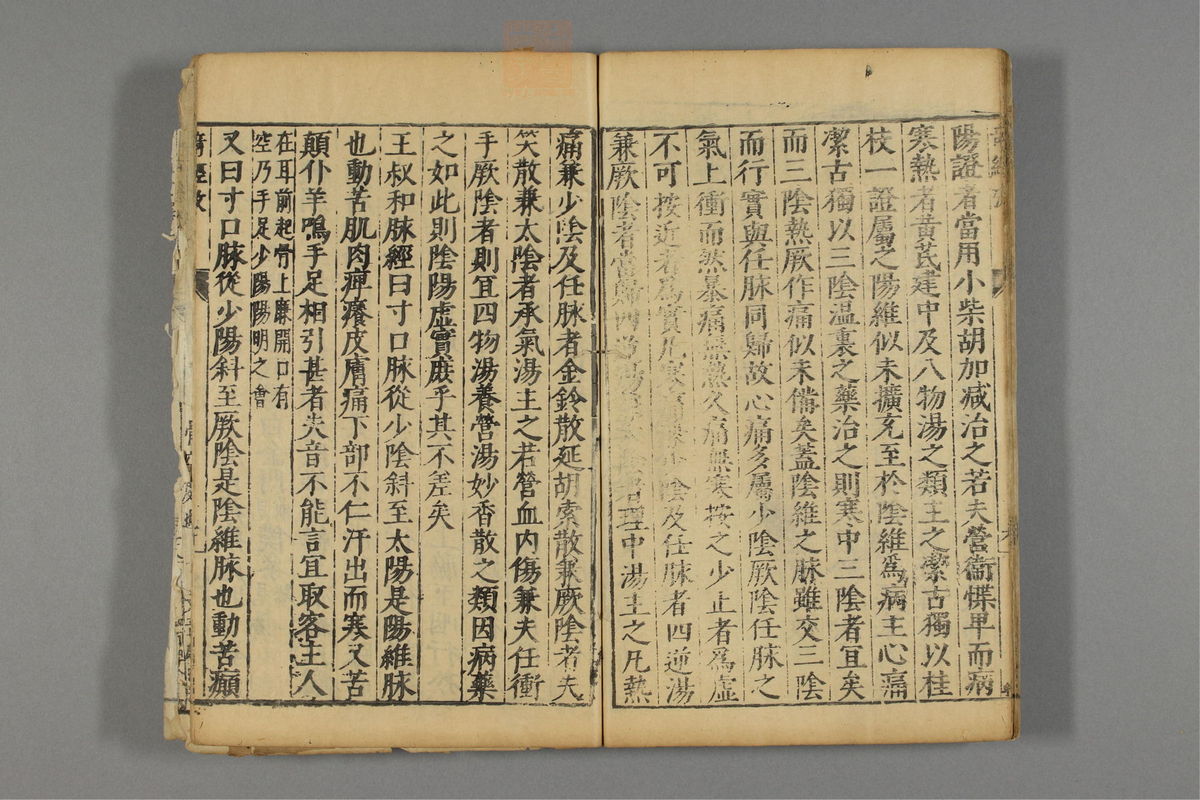 陽證者當用小柴胡加减治之若夫營衞惵卑而病
寒熱者黃芪建中及八物湯之類主之潔古獨以桂
枝一證屬之陽維似未擴充至於陰維爲病主心痛
潔古獨以三陰温裏之藥治之則寒中三陰者宜矣
而三陰熱厥作痛似未備矣蓋陰維之脉雖交三陰
而行實與任脉同歸故心痛多屬少陰厥陰任脉之
氣上衝而然暴痛無熱久痛無寒按之少止者爲虛
不可按近者爲實凡寒痛兼少陰及任脉者四逆湯
兼厥陰者當歸四逆湯兼太陰者理中湯主之凡熱
痛兼少陰及任脉者金鈴散延胡索散兼厥陰者失
笑散兼太陰者承氣湯主之若營血内傷兼夫任衝
手厥陰者則宜四物湯養營湯妙香散之類因病藥
之如此則陰陽虛實庶乎其不差矣
王叔和脉經曰寸口脉從少陰斜至太陽是陽維脉
也動苦肌肉痺癢皮膚痛下部不仁汗出而寒又苦
顛仆羊鳴手足相引甚者失音不能言宜取客主人
在耳前起骨上廉開口有
空乃手足少陽陽明之會
又曰寸口脉從少陽斜至厥陰是陰維脉也動苦癲